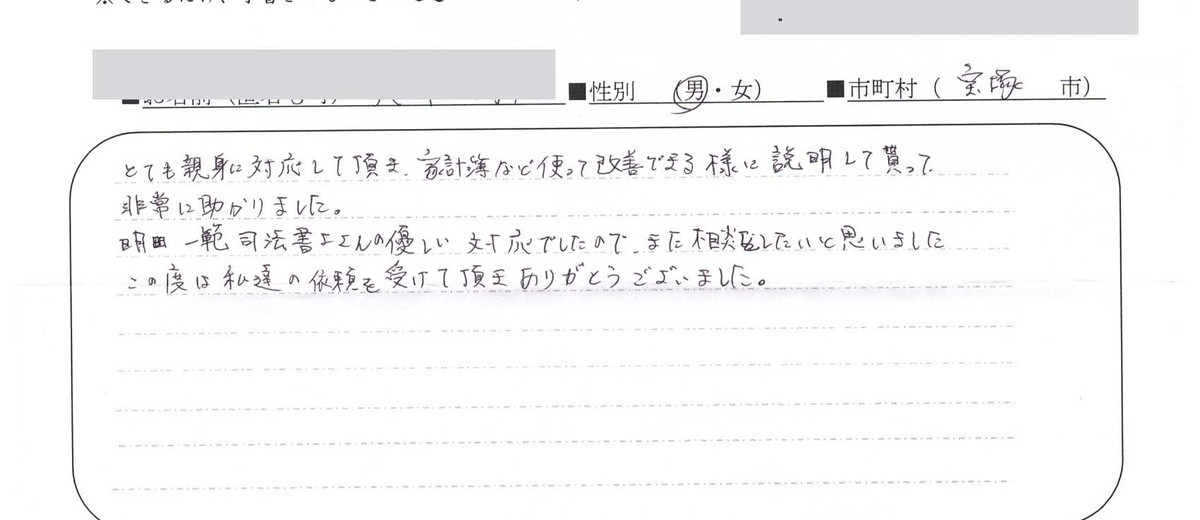 ■性別 (男・女) ■市町村 ( 宝塚 市)
とても親身に対応して頂き、家計簿など使って改善できる様に説明して貰って、
非常に助かりました。
明田 一範 司法書士さんの優しい対応でしたので、また相談したいと思いました
この度は私達の依頼を受けて頂きありがとうございました。